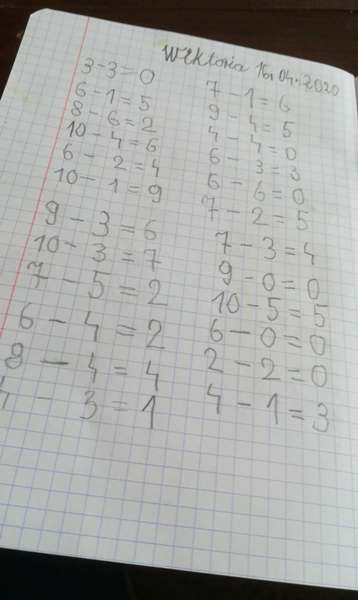 Wiktoria 16.04.2020
3-3=0
6-1=5
8-6=2
10-4=6
6-2=4
10-1=9
9-3=6
10-3=7
7-5=2
6-4=2
8-4=4
4-3=1
7-1=6
9-4=5
4-4=0
6-3=3
6-6=0
7-2=5
7-3=4
9-0=0
10-5=5
6-0=0
2-2=0
4-1=3